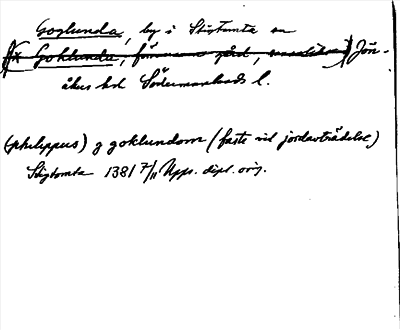 Goglunda, by i Stigtomta sn
(x Goklunda, försvunnen gård, ) Jön-
åkers hd Södermanlands l.
(philippus) j goklundom (faste vid jordavträdelse)
Stigtomta 1381 7/11 Upps. dipl. orig.